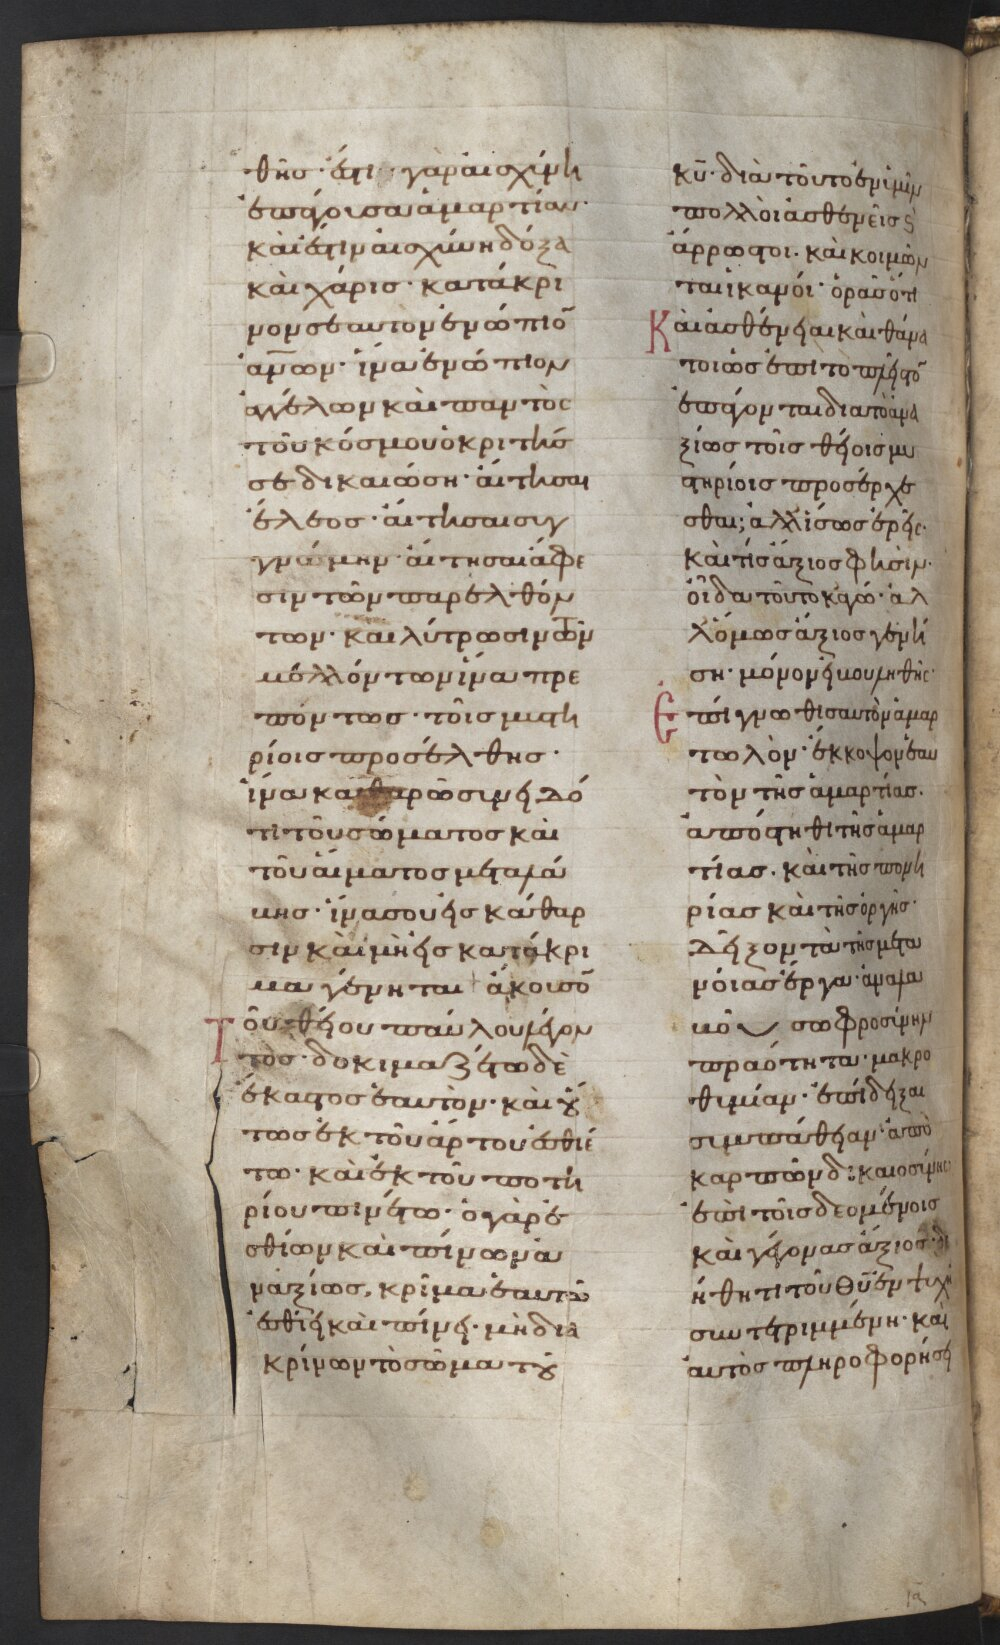 θῆς· ἔστι γὰρ αἰσχύνη
ἐπάγουσα ἁμαρτίαν·
καὶ ἔστιν αἰσχύνη δόξα
καὶ χάρις· κατάκρι
νον σεαυτὸν ἐνώπιο̅
ἀν̅ων· ἵνα ἐνώπιον
ἀγγέλων καὶ παντὸς
τοῦ κόσμου ὁ κριτὴς
σε δικαιώση· αἴτησαι
ἔλεος· αἴτησαι συγ
γνώμην· αἴτησαι ἄφε
σιν τῶν παρελθόν
των· καὶ λύτρωσιν τῶν
μελλόντων ἵνα πρε
πόντως· τοῖς μυστη
ρίοις προσέλθης·
ἵνα καθαρῶ συνει δό
τι τοῦ σώματος καὶ
τοῦ αἵματος μεταλά
βης· ἵνα σου εἰς κάθαρ
σιν καὶ μὴ εἰς κατάκρι
μα γένηται ἄκουσο̅
Τοῦ θείου παύλου λέγον
τος· δοκιμαζέτω δὲ
ἕκαστος ἑαυτὸν· καὶ ȣ̔
τως ἐκ τοῦ ἄρτου ἐσθιέ
τω· καὶ ἐκ τοῦ ποτη
ρίου πινέτω· ὁ γὰρ ἐ
σθίων καὶ πίνων ἀ
ναξίως, κρῖμα ἑαυτῶ
ἐσθίει καὶ πίνει· μὴ δια
κρίνων τὸ σῶμα τȣ̃
κυ̅· διὰ τοῦτο ἐν ὑμῖν
πολλοὶ ἀσθενεῖς ϗ̀
ἄρρωστοι· καὶ κοιμῶν
ται ἱκανοί· ὁρᾶς ὅτι
Καὶ ἀσθένειαι καὶ θάνα
τοι ὡς ἐπὶ τὸ πλεῖστο̅
ἐπάγονται διὰ τὸ ἀνα
ξίως τοῖς θείοις μυ
στηρίοις προσέρχε
σθαι; ἀλλ' ἴσως ἐρεῖς·
καὶ τίς ἄξιος φησίν·
οἶδα τοῦτο κἀγώ· ἀλ
λ' ὅμως ἄξιος γενή
ση· μόνον εἰ βουληθῆς·
Ἐπίγνωθι σαυτὸν ἁμαρ
τωλὸν· ἔκκοψον ἑαυ
τὸν τῆς ἁμαρτίας·
ἀπόστηθι τῆς ἁμαρ
τίας· καὶ τῆς πονη
ρίας καὶ τῆς ὀργῆς·
Δεῖξον τὰ τῆς μετα
νοίας ἔργα· ἀνάλα
βοῦ σωφροσύνην
πραότητα· μακρο
θυμίαν· ἐπίδειξαι
συμπάθειαν· ἀπὸ
καρπῶν δικαιοσύνης
ἐπὶ τοῖς δεομένοις
καὶ γέγονας ἄξιος· δε
ήθητι τοῦ θυ̅ ἐν ψυχῆ
συντετριμμένη· καὶ
αὐτὸς πληροφορήσει